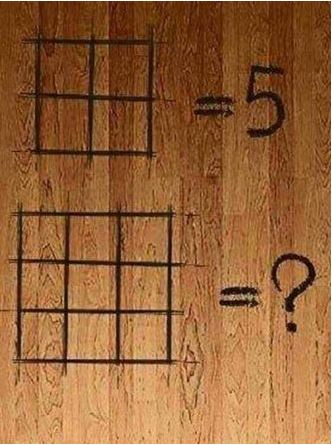 = 5
= ?